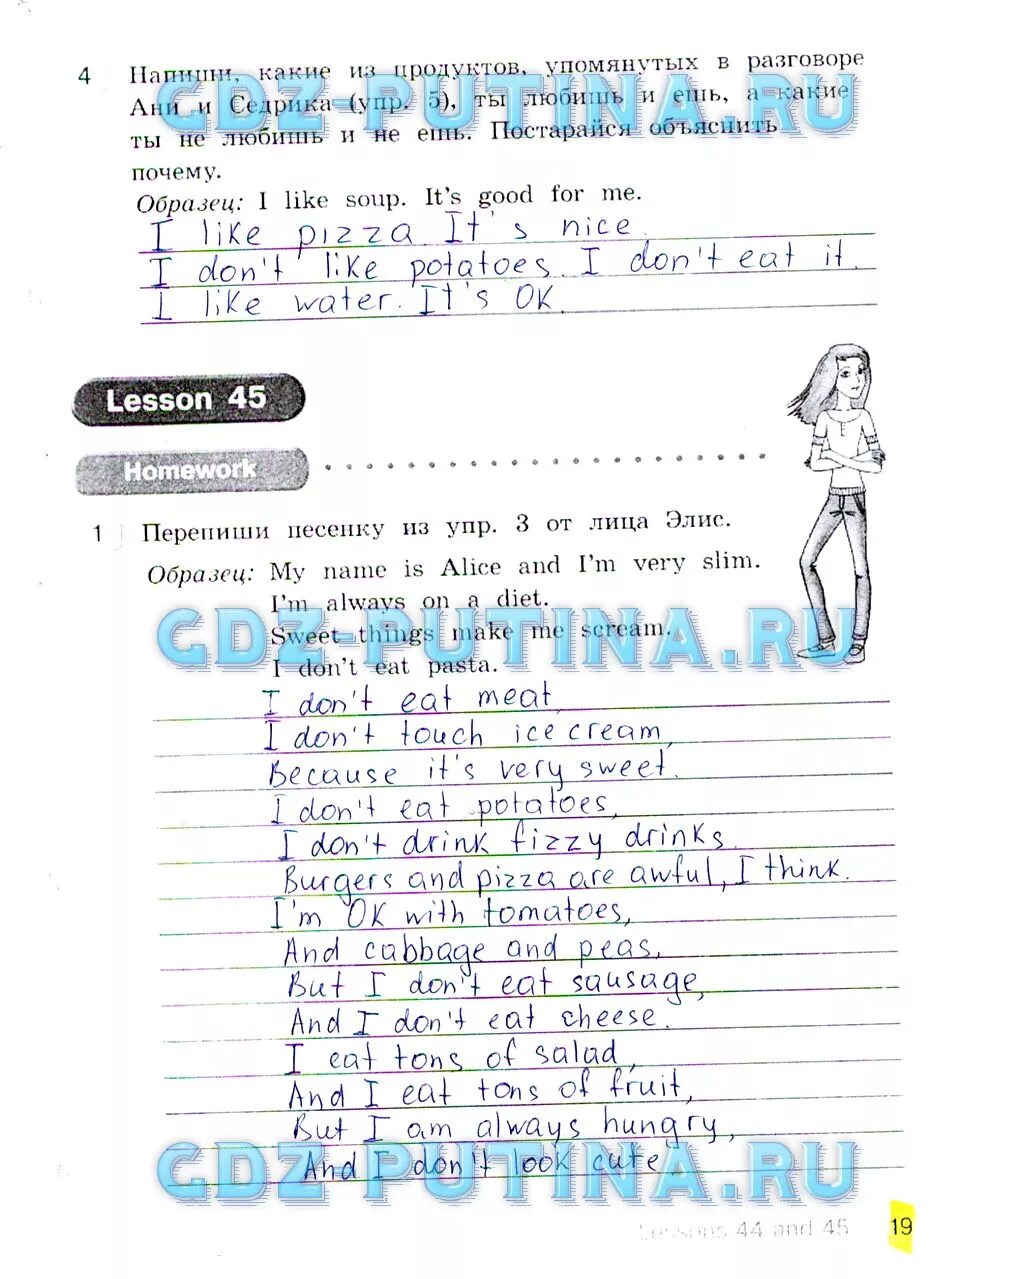 4 Напиши, какие из продуктов, упомянутых в разговоре
Ани и Седрика (упр. 5), ты любишь и ешь, а какие
ты не любишь и не ешь. Постарайся объяснить
почему.
Образец: I like soup. It's good for me.
I like pizza It's nice.
I don't like potatoes. I don't eat it.
I like water. It's OK.
Lesson 45
Homework
1 Перепиши песенку из упр. 3 от лица Элис.
Образец: My name is Alice and I'm very slim.
I'm always on a diet.
Sweet things make me scream.
I don't eat pasta.
I don't eat meat,
I don't touch ice cream,
Because it's very sweet.
I don't eat potatoes,
I don't drink fizzy drinks.
Burgers and pizza are awful, I think.
I'm OK with tomatoes,
And cabbage and peas,
But I don't eat sausage,
And I don't eat cheese.
I eat tons of salad,
And I eat tons of fruit,
But I am always hungry,
And I don't look cute
Lessons 44 and 45
19
GDZ-PUTINA.RU
GDZ-PUTINA.RU
GDZ-PUTINA.RU